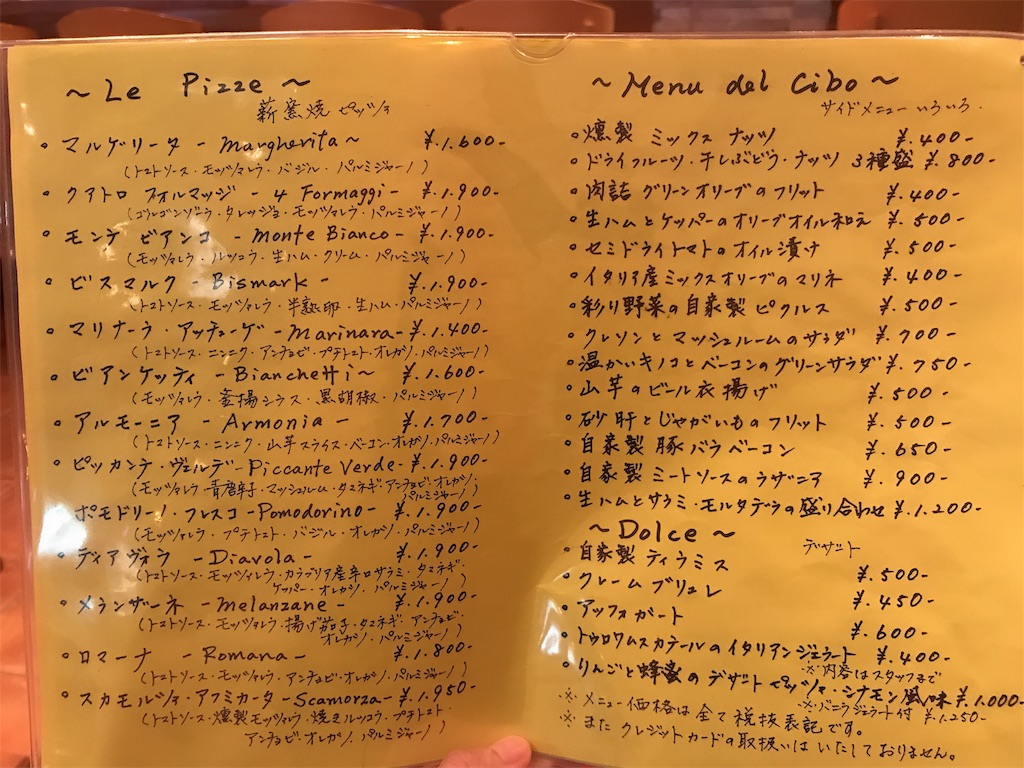 ～Le Pizze～
薪窯焼 ピッツァ
・マルゲリータ - Margherita～ ¥.1.600-
(トマトソース・モッツァレラ・バジル・パルミジャーノ)
・クアトロ フォルマッジ - 4 Formaggi- ¥.1.900-
(ゴルゴンゾーラ・タレッジョ・モッツァレラ・パルミジャーノ)
・モンテ ビアンコ - Monte Bianco- ¥.1.900-
(モッツァレラ・ルッコラ・生ハム・クリーム・パルミジャーノ)
・ビスマルク - Bismark - ¥.1.900-
(トマトソース・モッツァレラ・半熟卵・生ハム・パルミジャーノ)
・マリナーラ・アッチューゲ - Marinara- ¥.1.400-
(トマトソース・ニンニク・アンチョビ・プチトマト・オレガノ・パルミジャーノ)
・ビアンケッティ - Bianchetti～ ¥.1.600-
(モッツァレラ・釜揚シラス・黒胡椒・パルミジャーノ)
・アルモーニア - Armonia - ¥.1.700-
(トマトソース・ニンニク・山芋スライス・ベーコン・オレガノ・パルミジャーノ)
・ピッカンテ・ヴェルデ - Piccante Verde- ¥.1.900-
(モッツァレラ・青唐辛子・マッシュルーム・タマネギ・アンチョビ・オレガノ・
パルミジャーノ)
・ポモドリーノ・フレスコ - Pomodorino- ¥.1.900-
(モッツァレラ・プチトマト・バジル・オレガノ・パルミジャーノ)
・ディアヴォラ - Diavola - ¥.1.900-
(トマトソース・モッツァレラ・カラブリア産辛口サラミ・タマネギ・
ケッパー・オレガノ・パルミジャーノ)
・メランザーネ - Melanzane - ¥.1.900-
(トマトソース・モッツァレラ・揚げ茄子・タマネギ・アンチョビ・
オレガノ・パルミジャーノ)
・ロマーナ - Romana - ¥.1.800-
(トマトソース・モッツァレラ・アンチョビ・オレガノ・パルミジャーノ)
・スカモルツァ・アフミカータ - Scamorza- ¥.1.950-
(トマトソース・燻製モッツァレラ・焼きルッコラ・プチトマト・
アンチョビ・オレガノ・パルミジャーノ)
～Menu del Cibo～
サイドメニューいろいろ.
・燻製 ミックス ナッツ ¥.400-
・ドライフルーツ・干しぶどう・ナッツ 3種盛 ¥.800-
・肉詰 グリーンオリーブのフリット ¥.400-
・生ハムとケッパーのオリーブオイル和え ¥.500-
・セミドライトマトのオイル漬け ¥.500-
・イタリア産ミックスオリーブのマリネ ¥.400-
・彩り野菜の自家製ピクルス ¥.500-
・クレソンとマッシュルームのサラダ ¥.700-
・温かいキノコとベーコンのグリーンサラダ ¥.750-
・山芋のビール衣揚げ ¥.500-
・砂肝とじゃがいものフリット ¥.500-
・自家製 豚バラベーコン ¥.650-
・自家製 ミートソースのラザニア ¥.900-
・生ハムとサラミ・モルタデラの盛り合わせ ¥.1.200-
～Dolce～
デザート
・自家製 ティラミス ¥.500-
・クレームブリュレ ¥.450-
・アッフォガート ¥.600-
・トゥロワムスカテールのイタリアンジェラート ¥.400-
※内容はスタッフまで
・りんごと蜂蜜のデザートピッツァ・シナモン風味 ¥.1.000-
※バニラジェラート付 ¥.1.250-
※ メニュー価格は全て税抜表記です。
※ また クレジットカードの取扱いはいたしておりません。